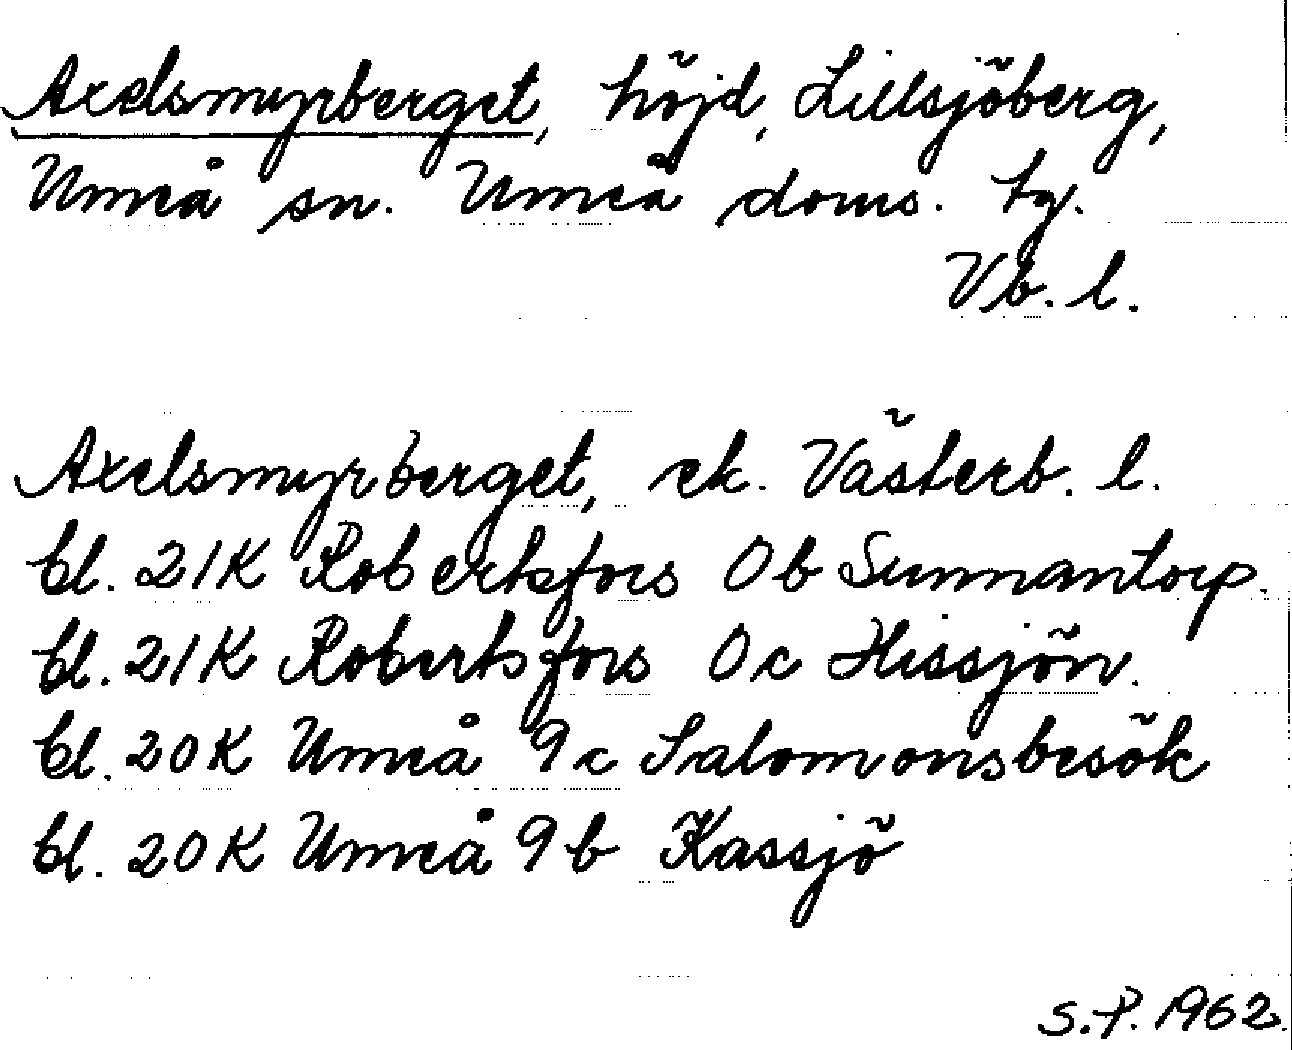 Axelsmyrberget, höjd, Lillsjöberg,
Umeå sn. Umeå doms. tg.
Vb. l.
Axelsmyrberget, ek. Västerb. l.
bl. 21K Robertsfors 0b Sunnantorp.
bl. 21K Robertsfors 0c Hissjön.
bl. 20K Umeå 9c Salomonsbesök
bl. 20K Umeå 9b Kassjö
S.P. 1962.